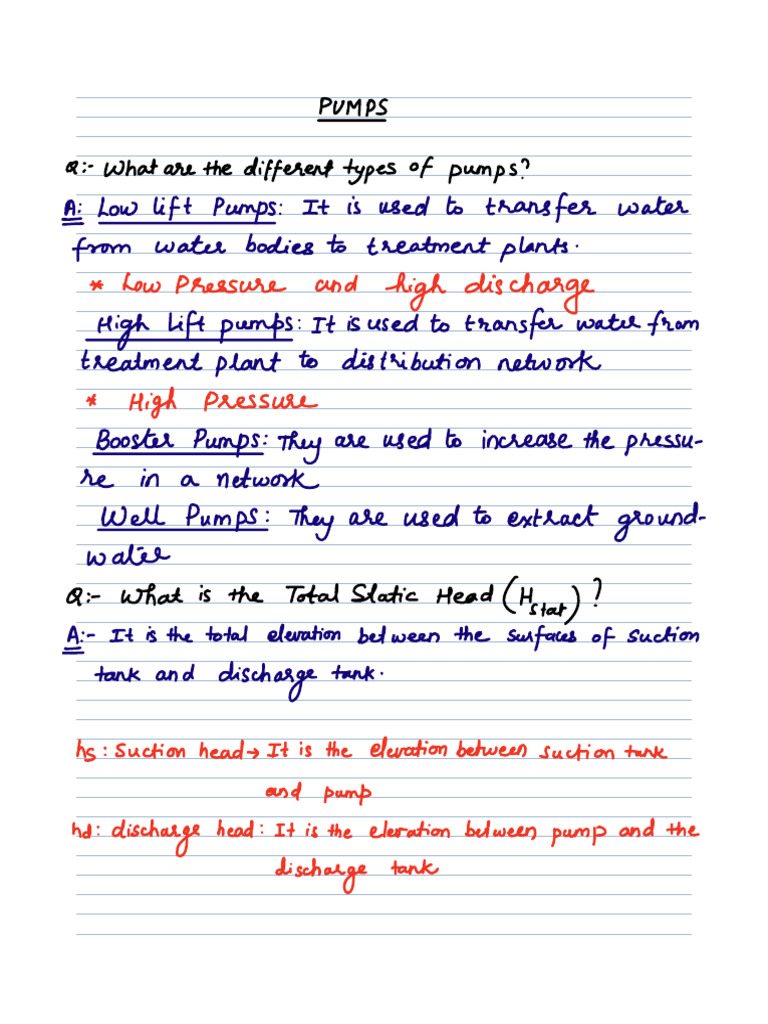 PUMPS
Q:- What are the different types of pumps?
A: Low lift Pumps: It is used to transfer water
from water bodies to treatment plants.
* Low Pressure and high discharge
High Lift pumps: It is used to transfer water from
treatment plant to distribution network
* High Pressure
Booster Pumps: They are used to increase the pressu-
re in a network
Well Pumps: They are used to extract ground-
water
Q:- What is the Total Static Head (H stat)?
A:- It is the total elevation between the surfaces of suction
tank and discharge tank.
hs: Suction head → It is the elevation between suction tank
and pump
hd: discharge head: It is the elevation between pump and the
discharge tank